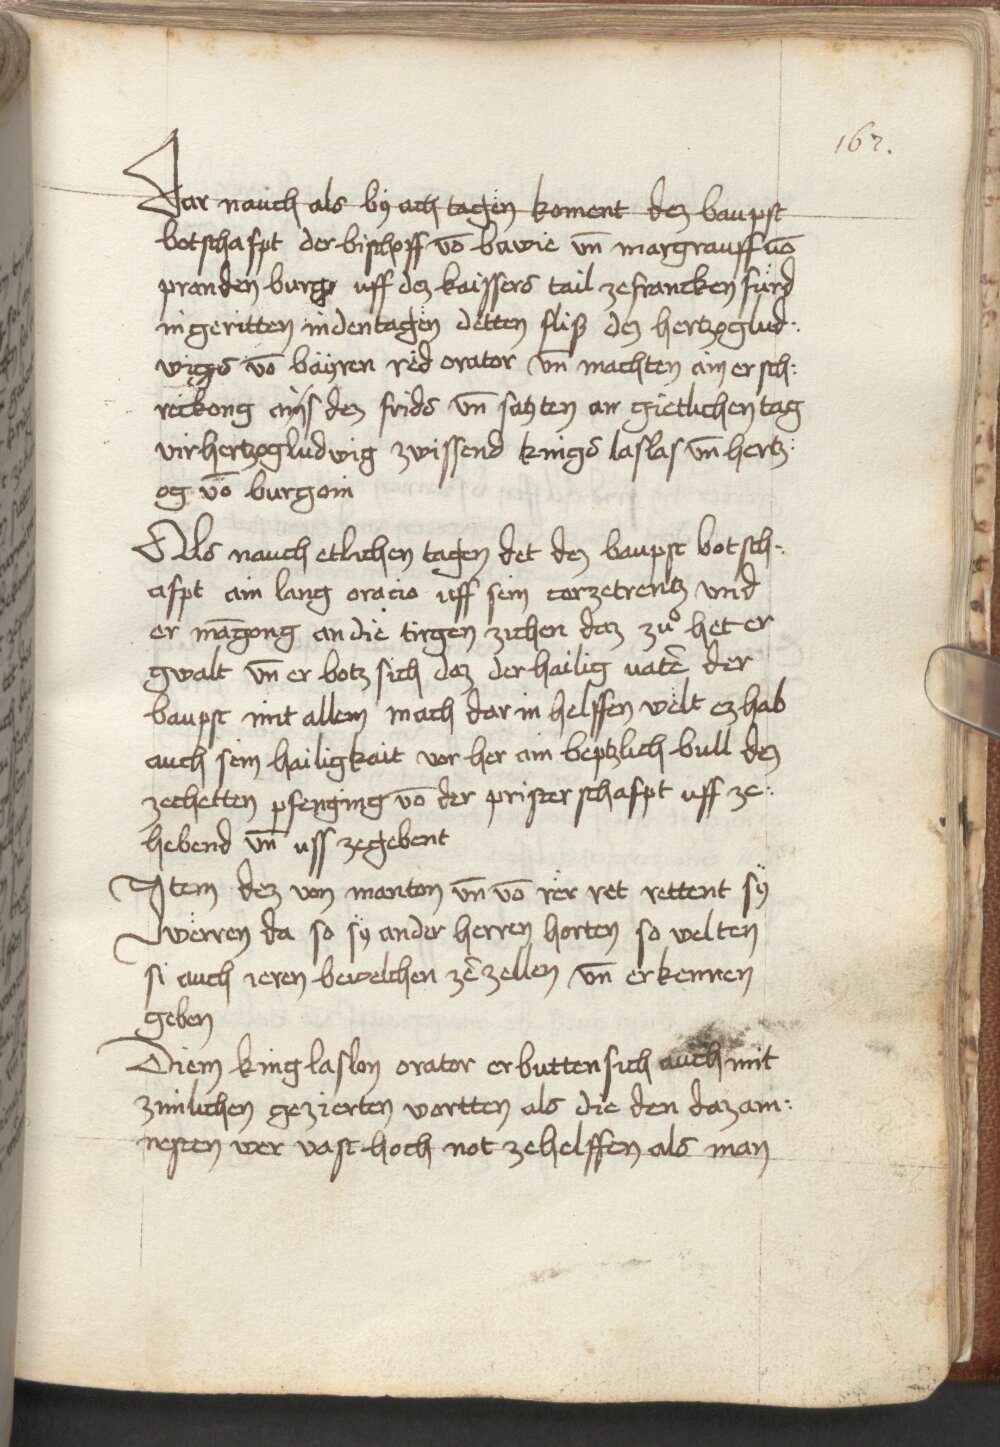 167.
Dar nauch als bÿ ach tagen koment dez baupst
botschafpt der bischoff vō bawie vn̄ margrauff vō
pranden burg uff dez kaissers tail ze francken fürd
in geritten in den tagen detten fliss dez hertzog lud⸗
wigs vō bäyren red orator vn̄ machten ain er sch⸗
reckong ains dez frids vn̄ satzten an gietlichen tag
vir hertzog ludwig zwissend kings laslas vn̄ hertz⸗
og vō burgoin
Als nauch etlichen tagen det dez baupst bot sch⸗
afpt ain lang oracio uff sein cor ze trentz vnd
er māgong an die tirgen zichen daz zuͦ het er
gwalt vn̄ er botz sich daz der hailig uatē der
baupst mit allem mach dar in helffen welt ez hab
auch sein hailigkait vor her ain beptzlich bull dez
zechetten pfenging vō der prister schafpt uff ze⸗
hebend vn̄ uss ze gebent
Item dez von manton vn̄ vō rer ret rettent sÿ
werren da so sÿ ander herren horten so welten
si auch ieren bewelchen zē zellen vn̄ erkennen
geben
Diem king laslon orator er butten sich auch mit
zimlichen gezierten wortten als die den daz am⸗
nesten wer vast hoch not ze helffen als man